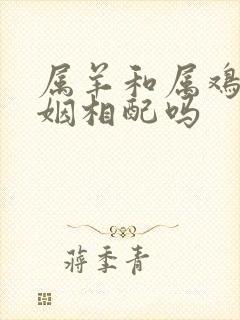 属羊和属鸡
姻相配吗
蒋季青